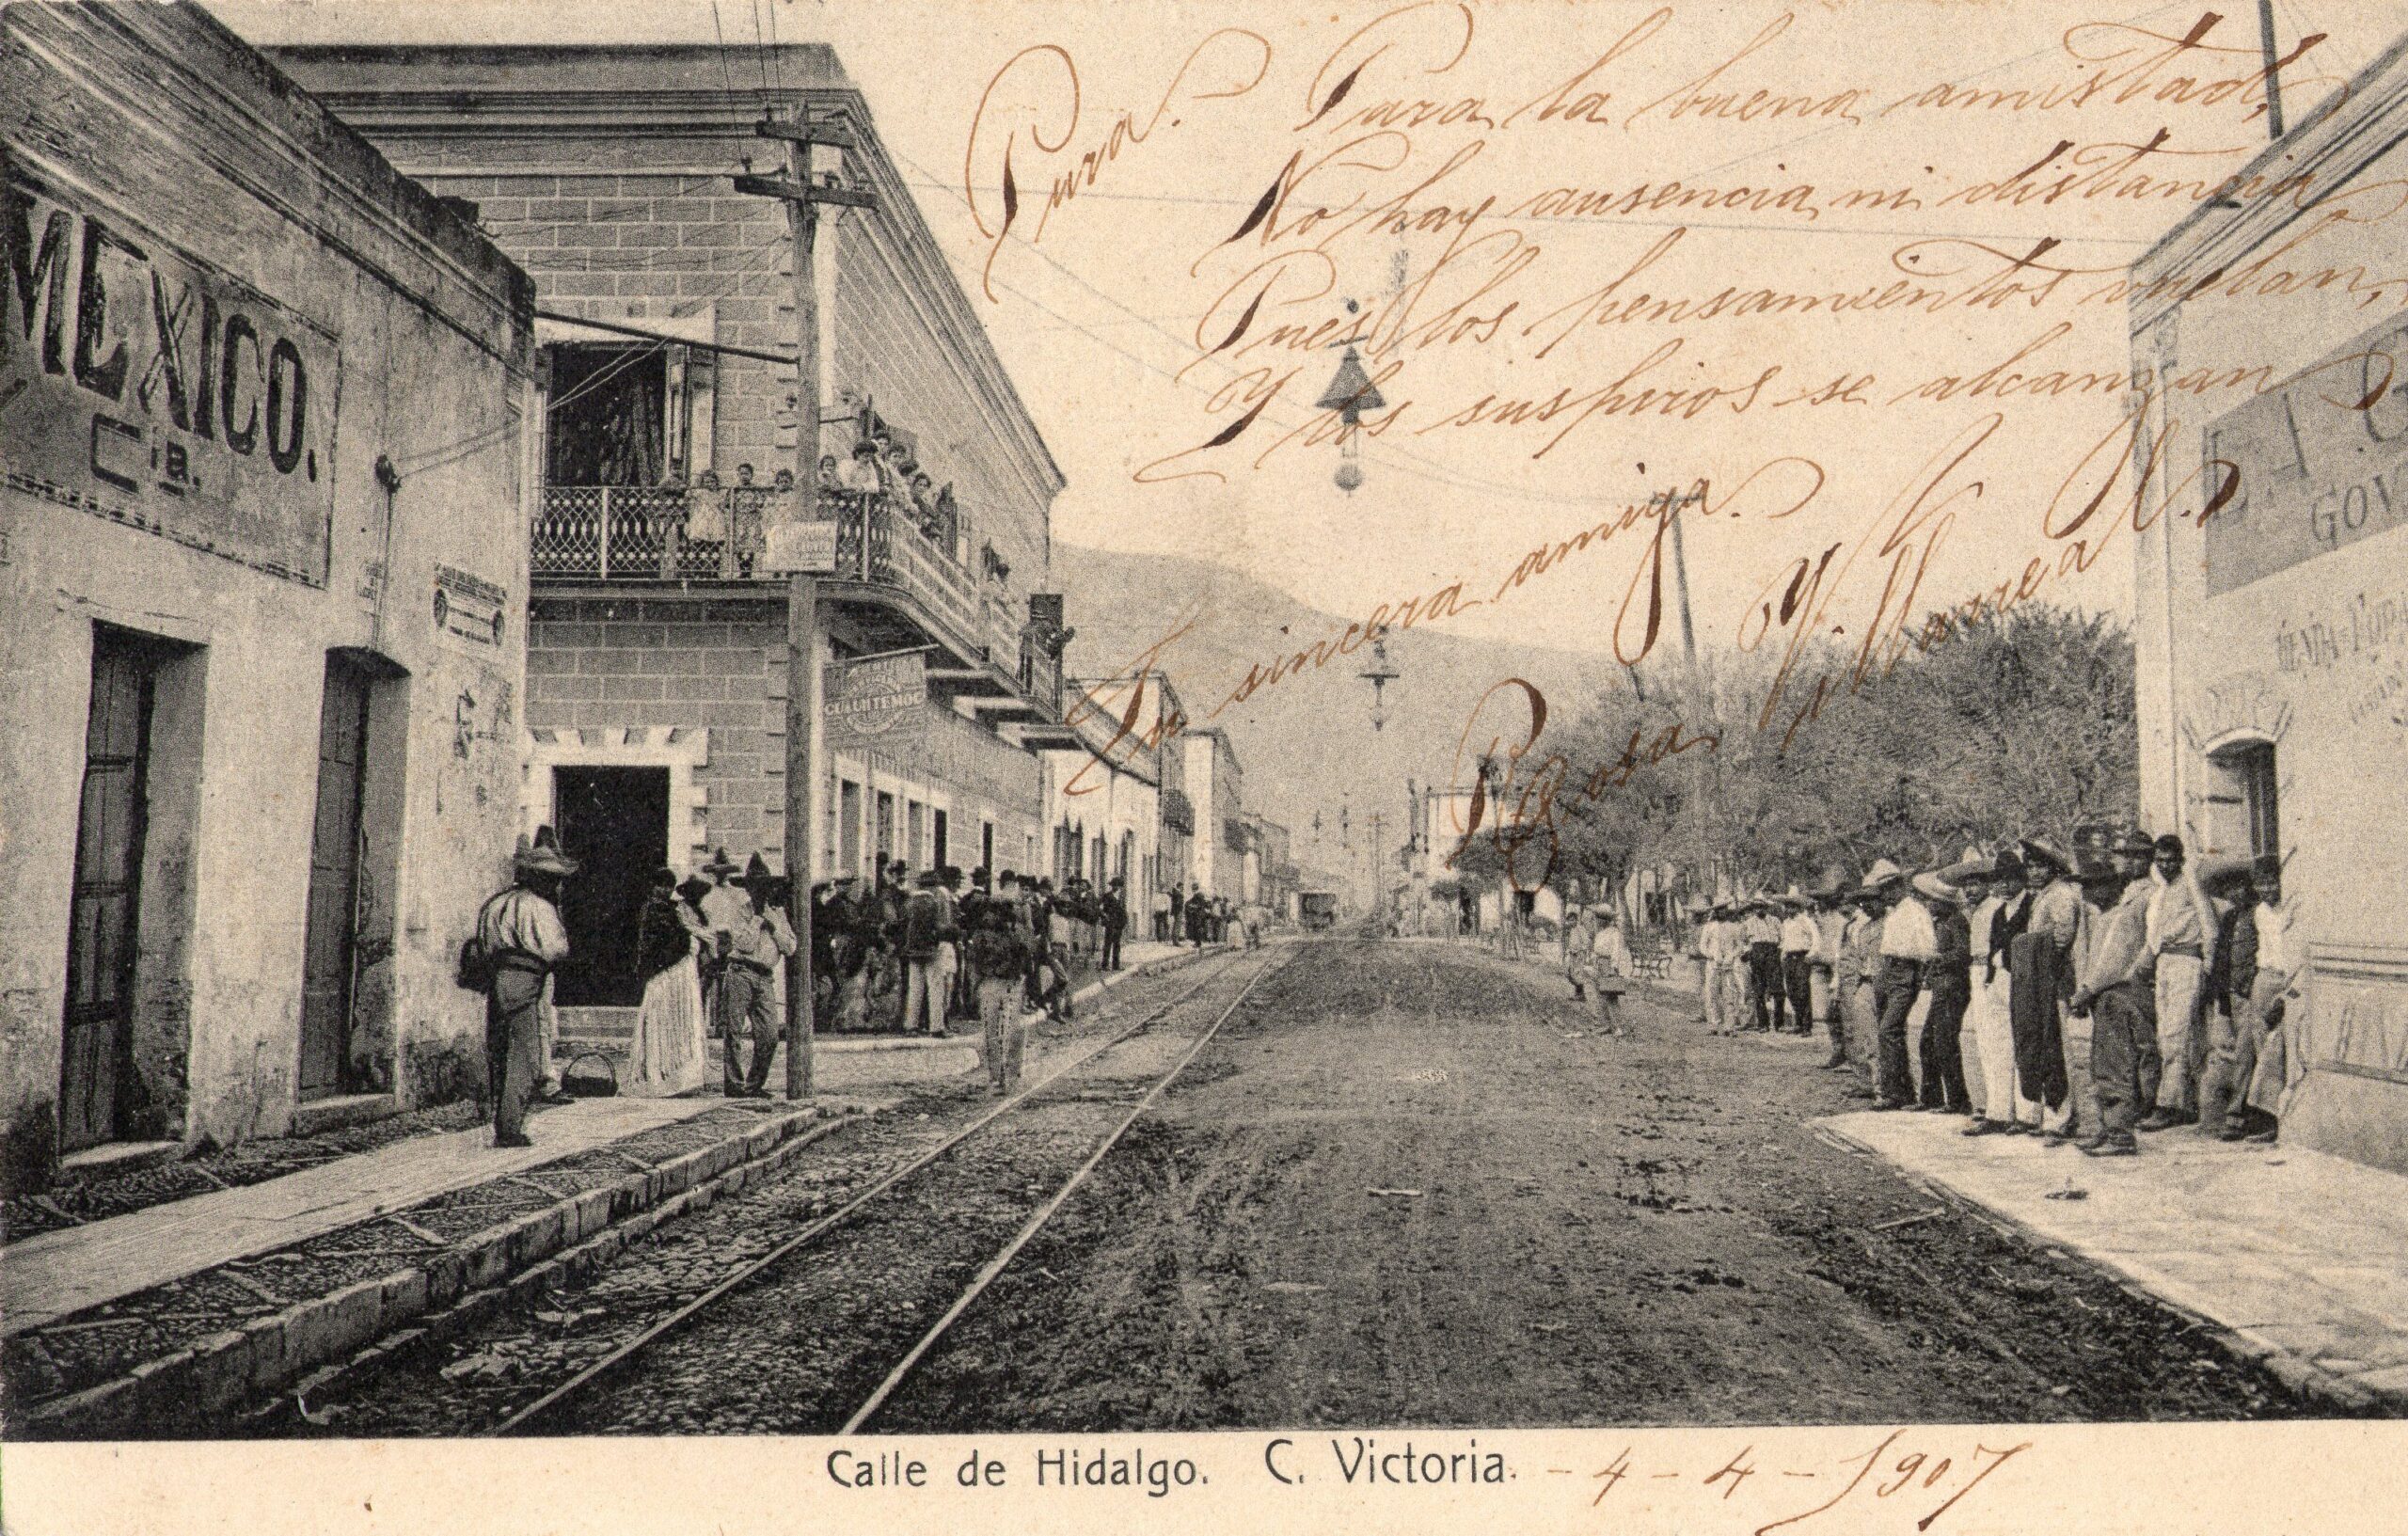 Pura.
Para la buena amistad,
No hay ausencia ni distancia,
Pues los pensamientos vuelan,
Y los suspiros se alcanzan
Tu sincera amiga.
Rosa Villarreal
MEXICO.
Cía.
CUAUHTEMOC
GOV
Calle de Hidalgo. C. Victoria. - 4 - 4 - 1907